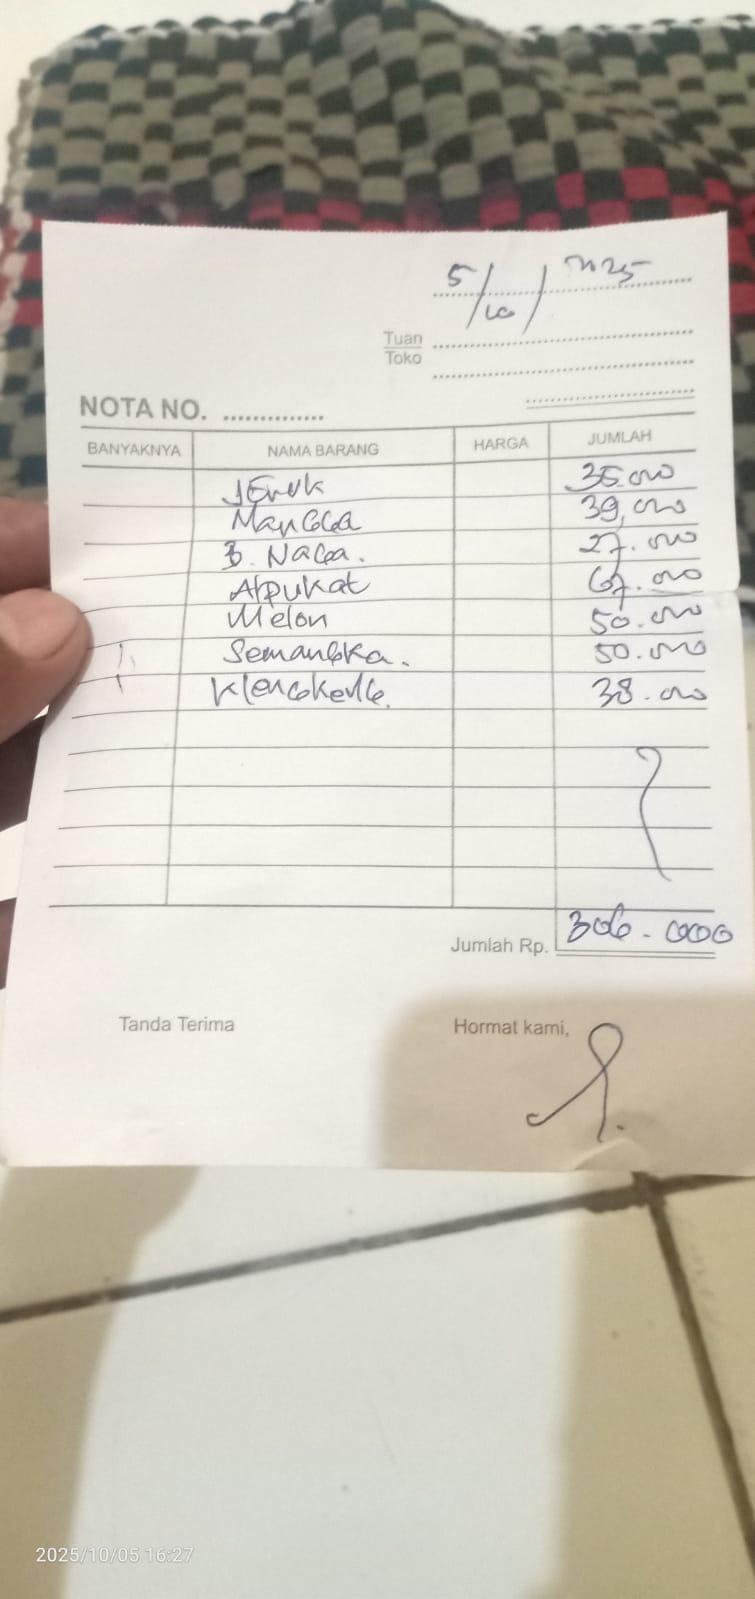 5/10/2025
Tuan
Toko
NOTA NO. ..............
BANYAKNYA NAMA BARANG HARGA JUMLAH
Jeruk 35.000
Mangga 39.000
B. Naga. 27.000
Alpukat 67.000
Melon 50.000
Semangka. 50.000
Klengkeng. 38.000
Jumlah Rp. 306.000
Tanda Terima Hormat kami,
2025/10/05 16:27